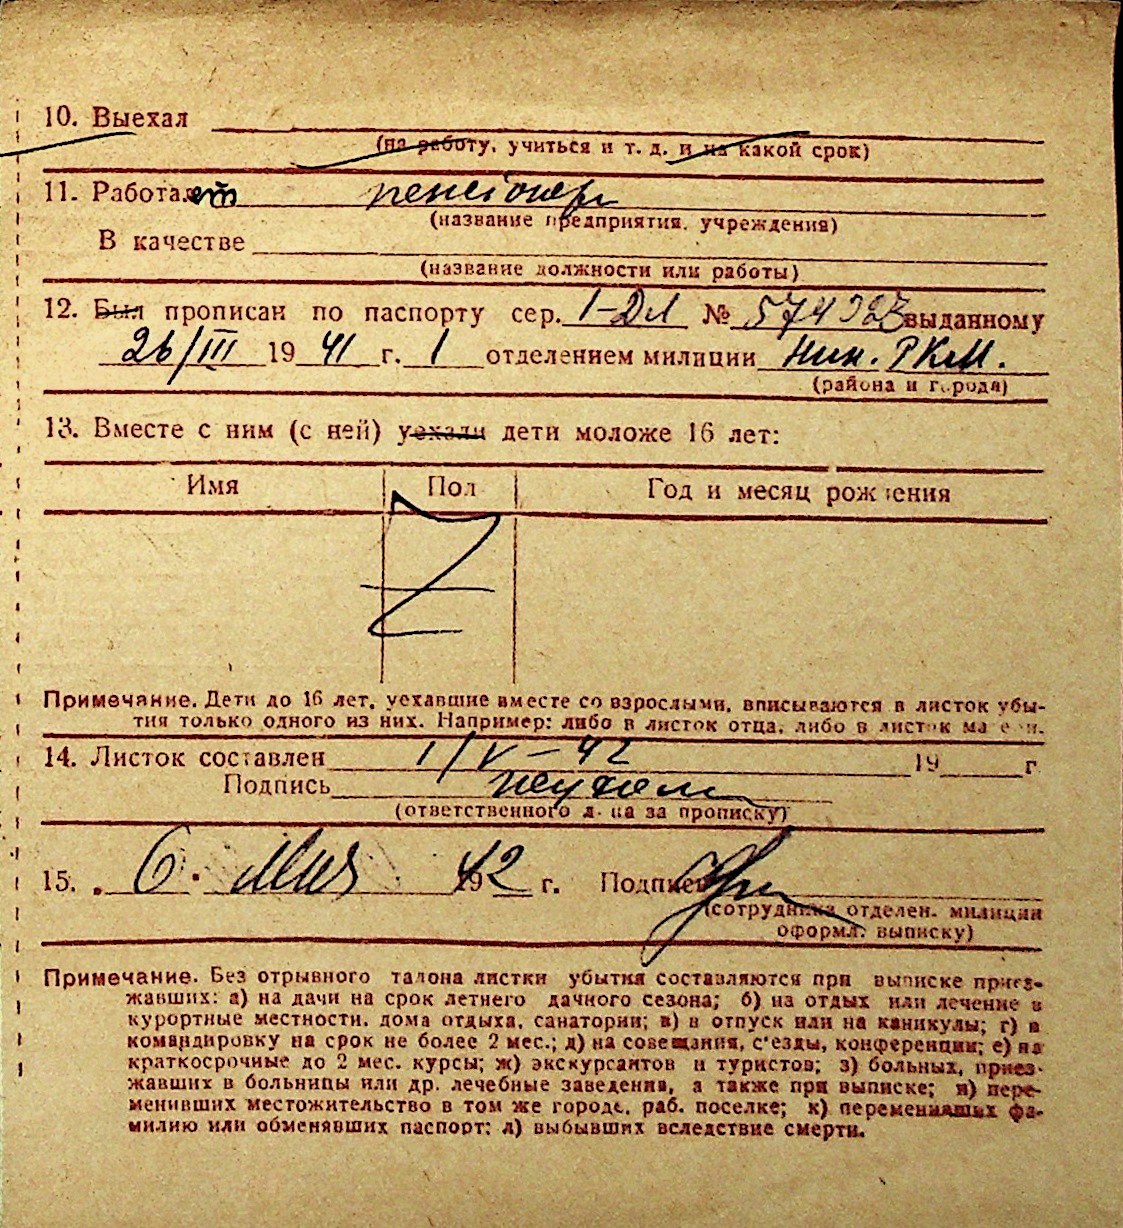 10. Выехал
(на работу, учиться и т. д. и на какой срок)
11. Работает пенсіонер
(название предприятия, учреждения)
В качестве
(название должности или работы)
12. Был прописан по паспорту сер. 1-ДЛ № 574323 выданному
26/III 1941 г. 1 отделением милиции Ник. РКМ.
(района и города)
13. Вместе с ним (с ней) уехали дети моложе 16 лет:
Имя Пол Год и месяц рождения
Z
Примечание. Дети до 16 лет, уехавшие вместе со взрослыми, вписываются в листок убы-
тия только одного из них. Например: либо в листок отца, либо в листок матери.
14. Листок составлен 1/V-42 19 г
Подпись
(ответственного л-ца за прописку)
15. 6. Мая 1942 г. Подпись
(сотрудника отделен. милиции
оформл. выписку)
Примечание. Без отрывного талона листки убытия составляются при выписке приез-
жавших: а) на дачи на срок летнего дачного сезона; б) на отдых или лечение в
курортные местности, дома отдыха, санатории; в) в отпуск или на каникулы; г) в
командировку на срок не более 2 мес.; д) на совещания, с'езды, конференции; е) на
краткосрочные до 2 мес. курсы; ж) экскурсантов и туристов; з) больных, приез-
жавших в больницы или др. лечебные заведения, а также при выписке; и) пере-
менивших местожительство в том же городе, раб. поселке; к) переменивших фа-
милию или обменявших паспорт; л) выбывших вследствие смерти.